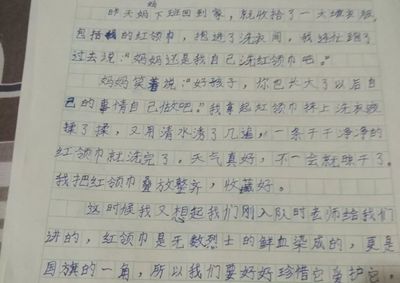 昨天妈妈下班回到家，就收拾了一大堆衣服，
包括我的红领巾，抱进了洗衣间，我赶忙跑了
过去说："妈妈还是我自己洗红领巾吧。"
妈妈笑着说："好孩子，你也长大了以后自
己的事情自己做吧。"我拿起红领巾抹上洗衣液
揉了揉，又用清水清了几遍，一条干干净净的
红领巾就洗完了。天气真好，不一会就晾干了。
我把红领巾叠放整齐，收藏好。
这时候我又想起我们刚入队时老师给我们
讲的，红领巾是无数烈士的鲜血染成的，更是
国旗的一角，所以我们要好好珍惜它爱护它。